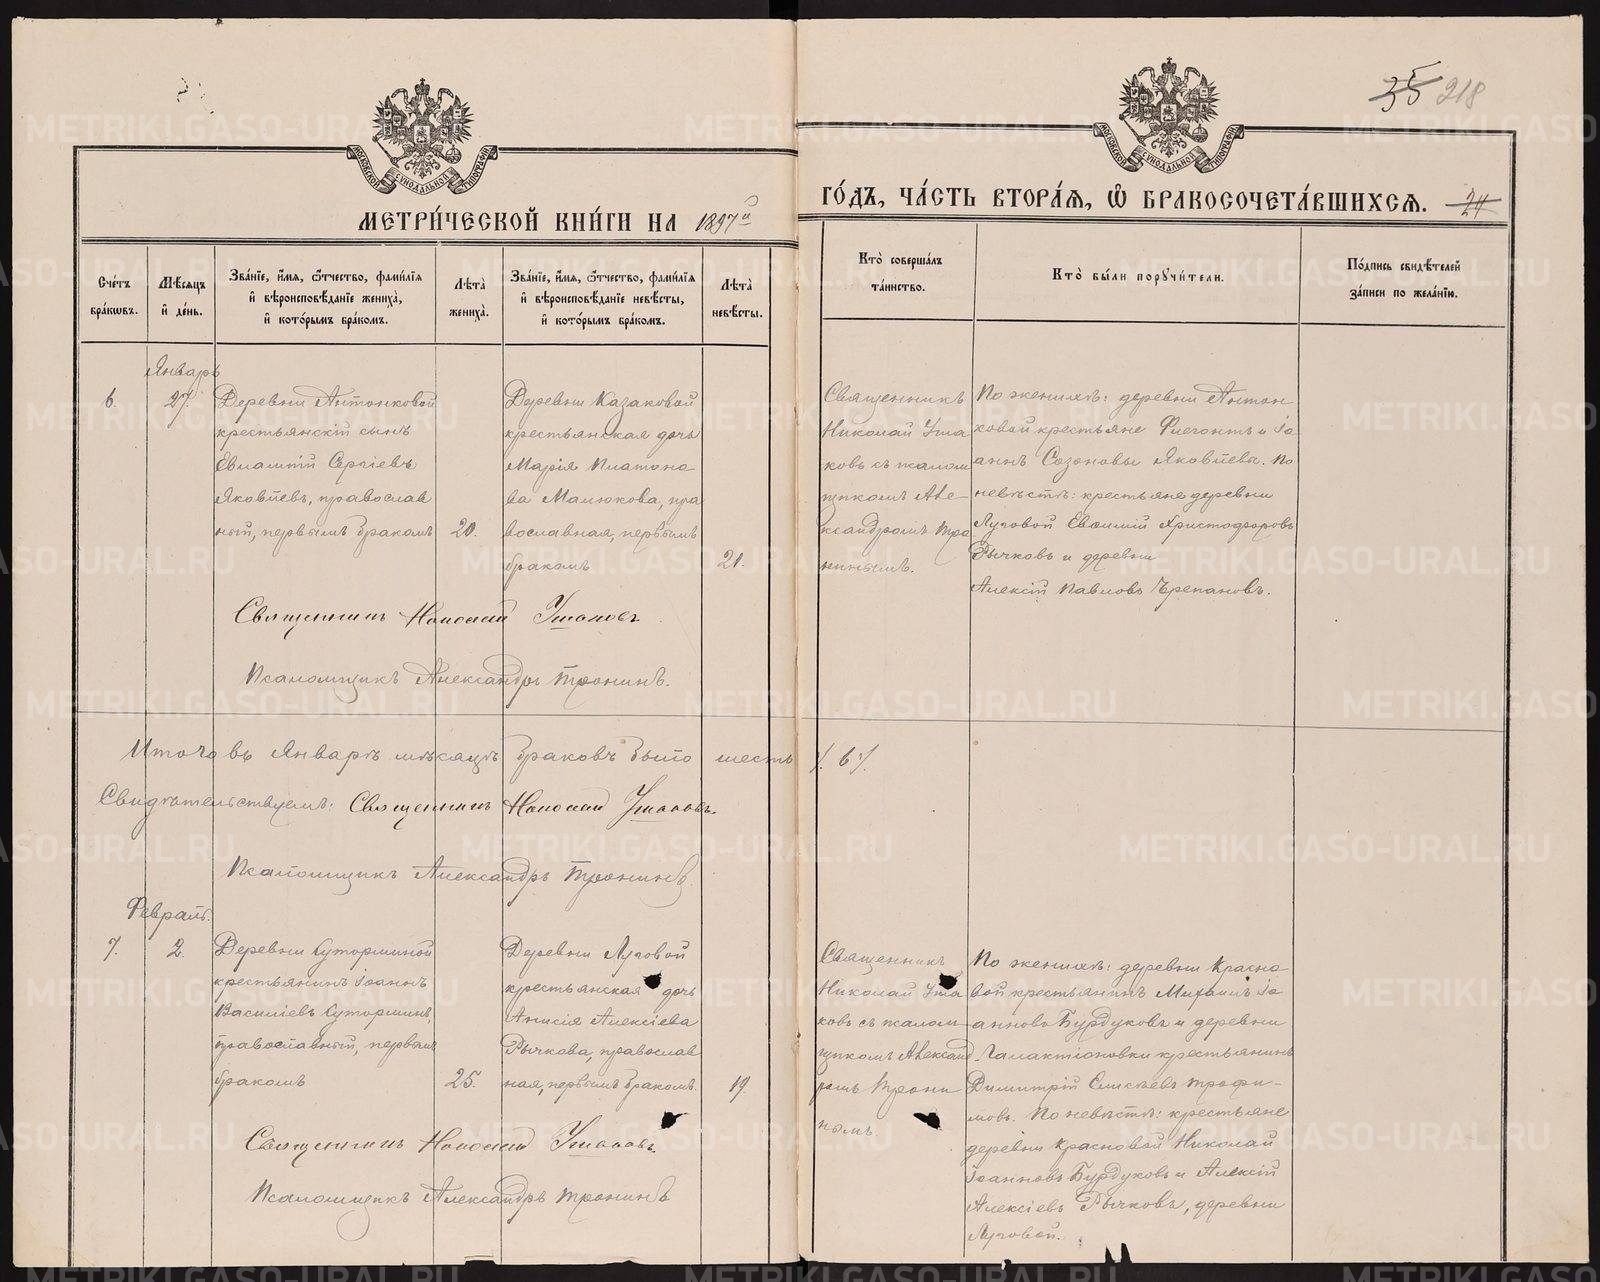 35 218
МОСКОВСКОЙ СѴНОДАЛЬНОЙ ТИПОГРАФІИ
МОСКОВСКОЙ СѴНОДАЛЬНОЙ ТИПОГРАФІИ
МЕТРИ́ЧЕСКОЙ КНИ́ГИ НА 1897й ГО́ДЪ, ЧА́СТЬ ВТОРА́Я, Ѿ БРАКОСОЧЕТА́ВШИХСЯ. 24
Сче́тъ бра́кѡвъ.
Мѣ́сяцъ и҆ де́нь.
Зва́нїе, и҆́мя, ѻ҆́тчество, фами́лїя и҆ вѣроисповѣ́данїе жениха̀, и҆ кото́рымъ бра́комъ.
Лѣта̀ жениха̀.
Зва́нїе, и҆́мя, ѻ҆́тчество, фами́лїя и҆ вѣроисповѣ́данїе невѣ́сты, и҆ кото́рымъ бра́комъ.
Лѣта̀ невѣ́сты.
Кто̀ соверша́лъ та́инство.
Кто̀ бы́ли поручи́тели.
По́дпись свидѣ́телей за́писи по жела́нїю.
Январь
6. 27.
Деревни Антонковой
крестьянскій сынъ
Евлампій Сергіевъ
Яковлевъ, православ
ный, первымъ бракомъ
20.
Деревни Казаковой
крестьянская дочь
Марія Платоно
ва Малюкова, пра
вославная, первымъ
бракомъ
21.
Священникъ
Николай Уша
ковъ съ псалом
щикомъ Але-
ксандромъ Тро
нинымъ.
По женихѣ: деревни Антон
ковой крестьяне Флегонтъ и Іо
аннъ Созоновы Яковлевы. По
невѣстѣ: крестьяне деревни
Луговой Евѳимій Христофоровъ
Рычковъ и деревни
Алексій Павловъ Черепановъ.
Священникъ Николай Ушаковъ
Псаломщикъ Александръ Тронинъ.
Итого въ Январѣ мѣсяцѣ браковъ было шесть /. 6 /.
Свидѣтельствуемъ: Священникъ Николай Ушаковъ.
Псаломщикъ Александръ Тронинъ
Февраль.
7. 2.
Деревни Суторминой
крестьянинъ Іоаннъ
Василіевъ Суторминъ,
православный, первымъ
бракомъ
25.
Деревни Луговой
крестьянская дочь
Анисія Алексіева
Рычкова, православ
ная, первымъ бракомъ.
19.
Священникъ
Николай Уша
ковъ съ псалом
щикомъ Александ
ромъ Трони
нымъ
По женихѣ: деревни Красно
вой крестьянинъ Михаилъ Іо
анновъ Бурдуковъ и деревни
Галактіоновки крестьянинъ
Димитрій Елисѣевъ Трофи-
мовъ. По невѣстѣ: крестьяне
деревни Красновой Николай
Іоанновъ Бурдуковъ и Алексій
Алексіевъ Рычковъ, деревни
Луговой.
Священникъ Николай Ушаковъ.
Псаломщикъ Александръ Тронинъ
METRIKI.GASO-URAL.RU